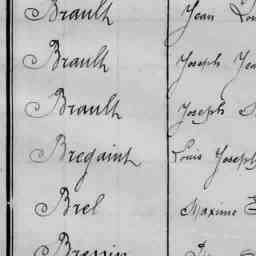 Brault Jean
Brault Joseph
Brault Joseph
Bregaint Louis Joseph
Brel Maxime